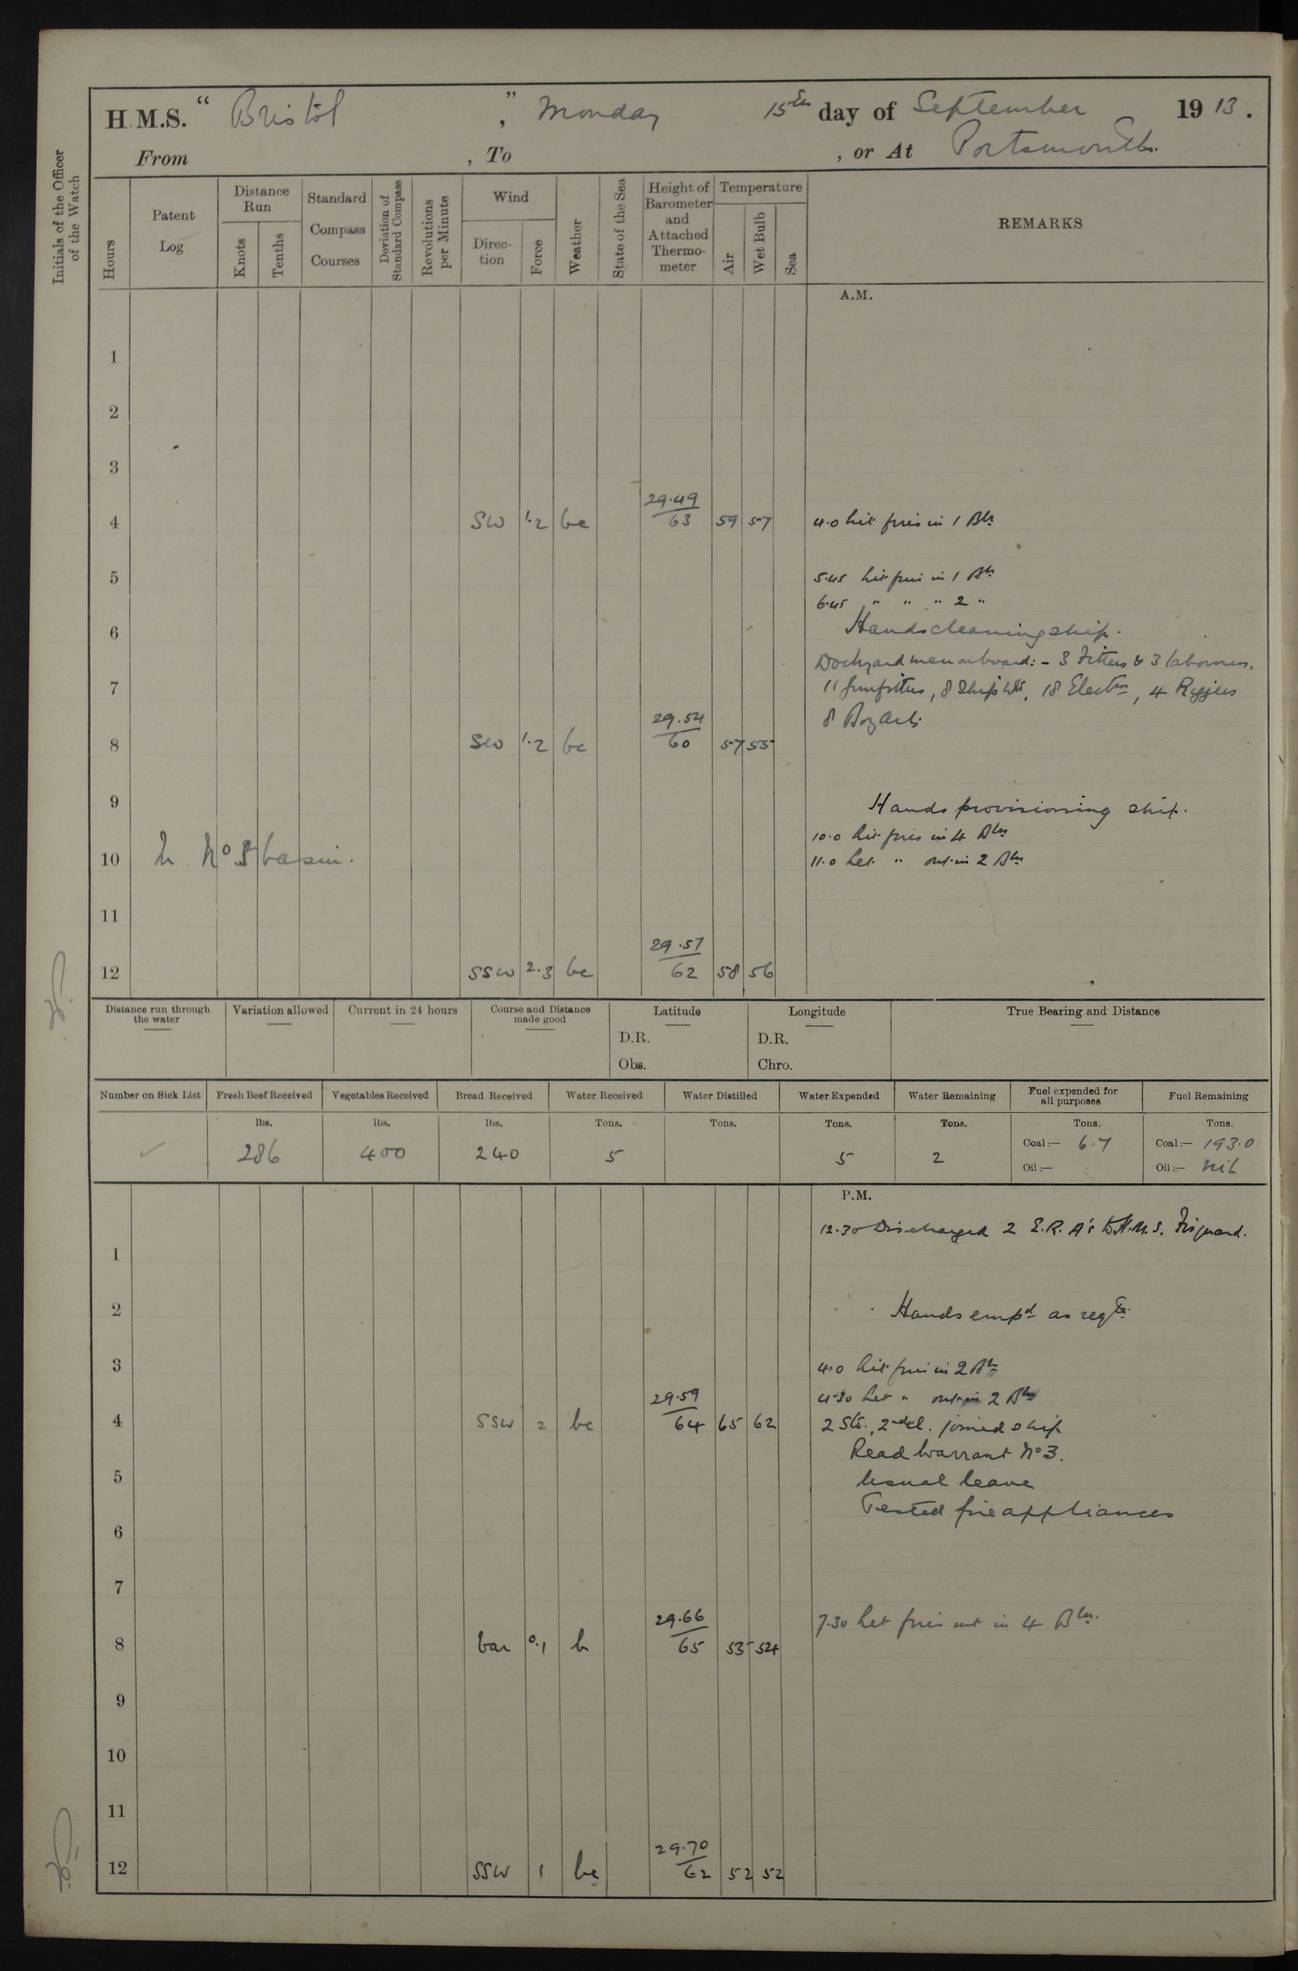 H.M.S. " Bristol ", Monday 15th day of September 1913.
From , To , or At Portsmouth.
Initials of the Officer of the Watch
Hours
Patent Log
Distance Run
Knots
Tenths
Standard Compass Courses
Deviation of Standard Compass
Revolutions per Minute
Wind
Direction
Force
Weather
State of the Sea
Height of Barometer and Attached Thermometer
Temperature
Air
Wet Bulb
Sea
REMARKS
A.M.
1
2
3
29.49
4 SW 1.2 bc 63 59 57 4.0 lit fires in 1 Blr
5 5.45 lit fires in 1 Blr
6.45 " " " 2 "
6 Hands cleaning ship.
Dockyard men onboard: - 3 Fitters & 3 labourers,
7 11 Gunfitters, 8 Shipwts, 18 Electrn, 4 Riggers
29.54 8
8 SW 1.2 bc 60 57 55
9 Hands provisioning ship.
10.0 lit fires in 4 Blrs
10 In No 3 basin. 11.0 let " out in 2 Blrs
11
29.57
12 SSW 2.3 bc 62 58 56
Distance run through the water
Variation allowed
Current in 24 hours
Course and Distance made good
Latitude
D.R.
Obs.
Longitude
D.R.
Chro.
True Bearing and Distance
Number on Sick List Fresh Beef Received Vegetables Received Bread Received Water Received Water Distilled Water Expended Water Remaining Fuel expended for all purposes Fuel Remaining
lbs. lbs. lbs. Tons. Tons. Tons. Tons. Tons. Tons.
✓ 286 400 240 5 5 2 Coal:— 6.7 Coal:— 193.0
Oil:— Oil:— Nil
P.M.
12.30 Discharged 2 E.R.A's to H.M.S. Fisguard.
1
2 Hands empd as reqte.
3 4.0 lit fires in 2 Blrs
29.59 4.30 let " out in 2 Blrs
4 SSW 2 bc 64 65 62 2 Sto., 2nd cl. joined ship
Read Warrant No 3.
5 Usual leave
Tested fire appliances
6
7
29.66 7.30 let fires out in 4 Blrs.
8 var 0.1 b 65 53 54
9
10
11
29.70
12 SSW 1 bc 62 52 52